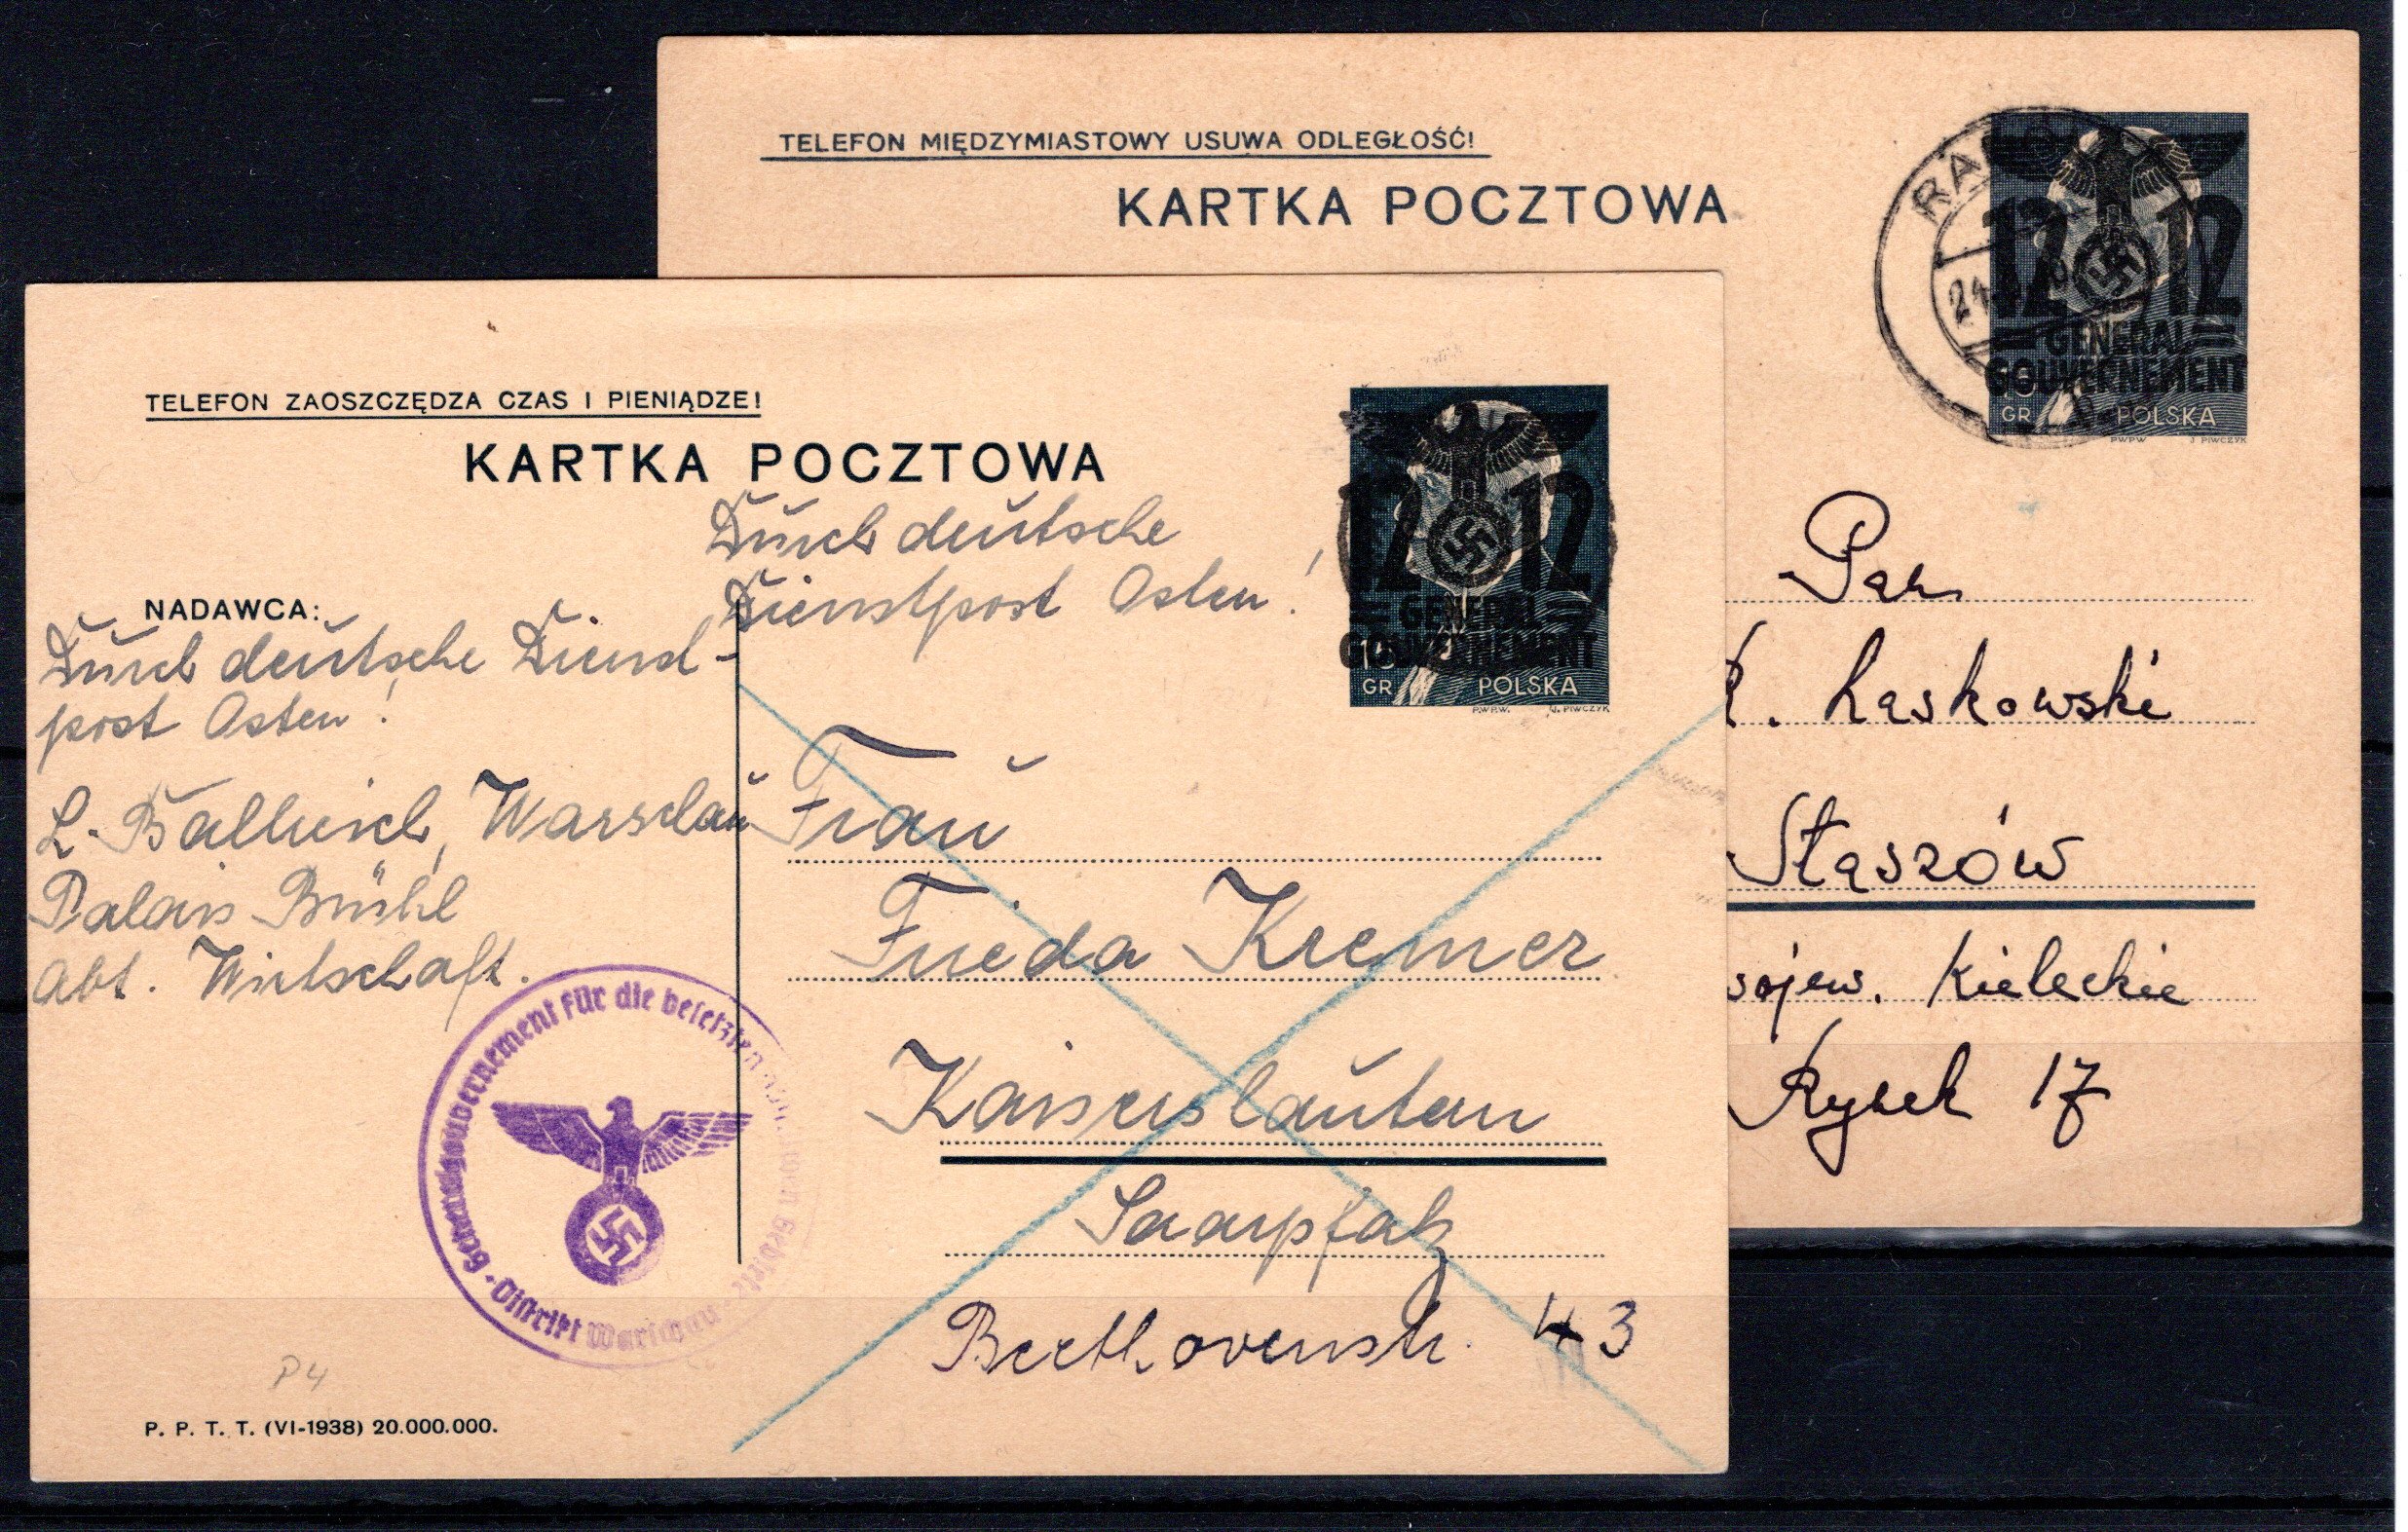 TELEFON MIĘDZYMIASTOWY USUWA ODLEGŁOŚĆ!
KARTKA POCZTOWA
12 12
GENERAL
GOUVERNEMENT
GR POLSKA
PWPW J. PIWCZYK
Pan
Laskowski
Staszów
wojew. Kieleckie
Rynek 17
TELEFON ZAOSZCZĘDZA CZAS I PIENIĄDZE!
KARTKA POCZTOWA
Durch deutsche
Dienstpost Osten!
12 12
GENERAL
GOUVERNEMENT
15
GR POLSKA
P.W.P.W. J. PIWCZYK
NADAWCA:
Durch deutsche Dienst-
post Osten!
L. Warschau
Palais Brühl
Abt. Wirtschaft.
Frau
Frieda Kremer
Kaiserslautern
Saarpfalz
Beethovenstr. 43
Generalgouvernement für die besetzten poln. Gebiete
Distrikt Warschau
P4
P. P. T. T. (VI-1938) 20.000.000.